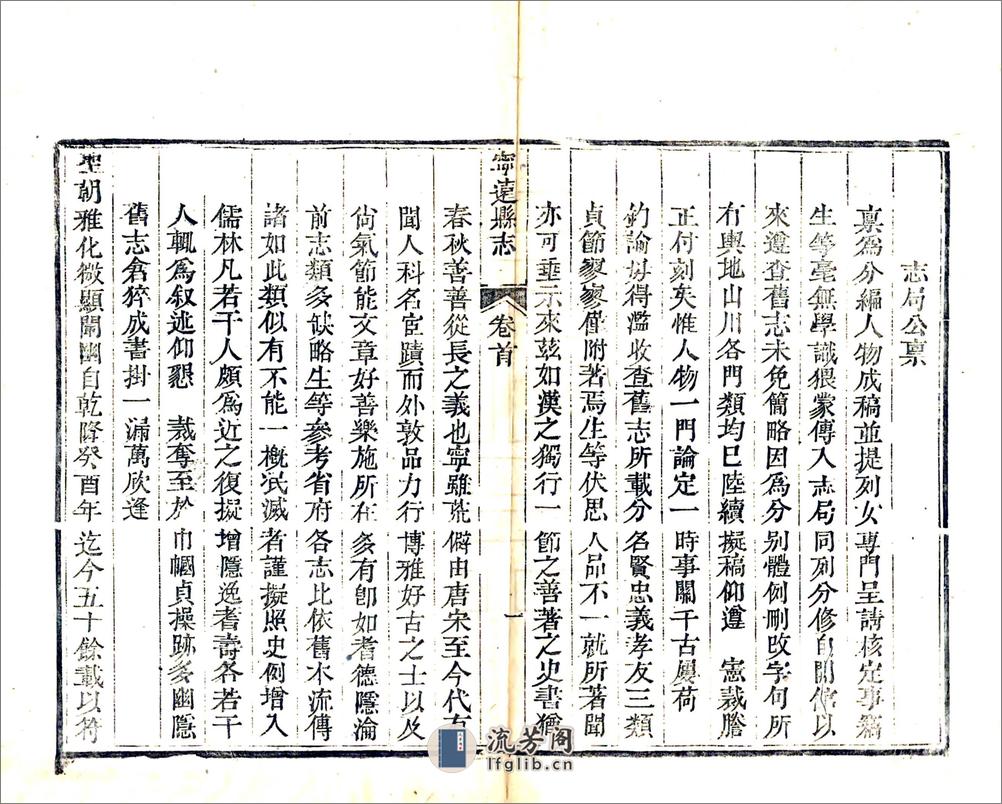 志局公稟
稟爲分編人物成稿並提列女專門呈請核定事竊
生等毫無學識猥蒙傳入志局同列分修自開館以
來遵查舊志未免簡略因爲分別體例刪改字句所
有輿地山川各門類均已陸續擬稿仰遵 憲裁謄
正付刻矣惟人物一門論定一時事關千古屢荷
鈞論毋得濫收查舊志所載分名賢忠義孝友三類
貞節寥寥僅附著焉生等伏思人品不一就所著聞
亦可垂示來玆如漢之獨行一節之善著之史書猶
寧遠縣志 卷首 一
春秋善善從長之義也寧雖荒僻由唐宋至今代有
聞人科名宦蹟而外敦品力行博雅好古之士以及
尙氣節能文章好善樂施所在多有卽如耆德隱淪
前志類多缺略生等參考省府各志比依舊本流傳
諸如此類似有不能一槪泯滅者謹擬照史例增入
儒林凡若干人頗爲近之復擬增隱逸耆壽各若干
人輒爲叙述仰懇 裁奪至於巾幗貞操跡多幽隱
舊志倉猝成書掛一漏萬欣逢
聖朝雅化微顯闡幽自乾隆癸酉年迄今五十餘載以符
流芳阁
lfglib.cn